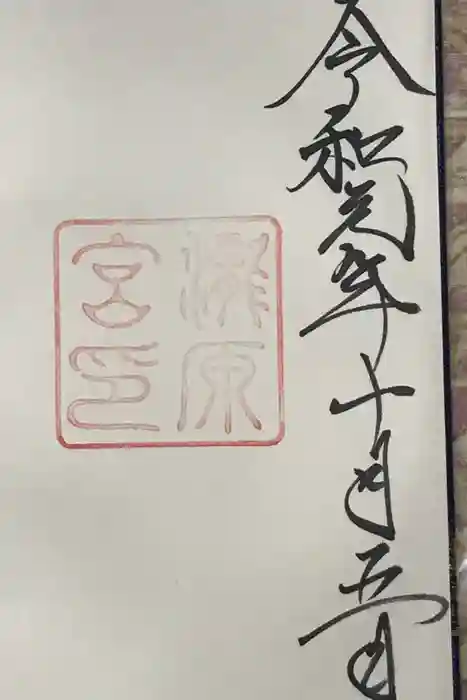 令和元年十月五日
原
宮印